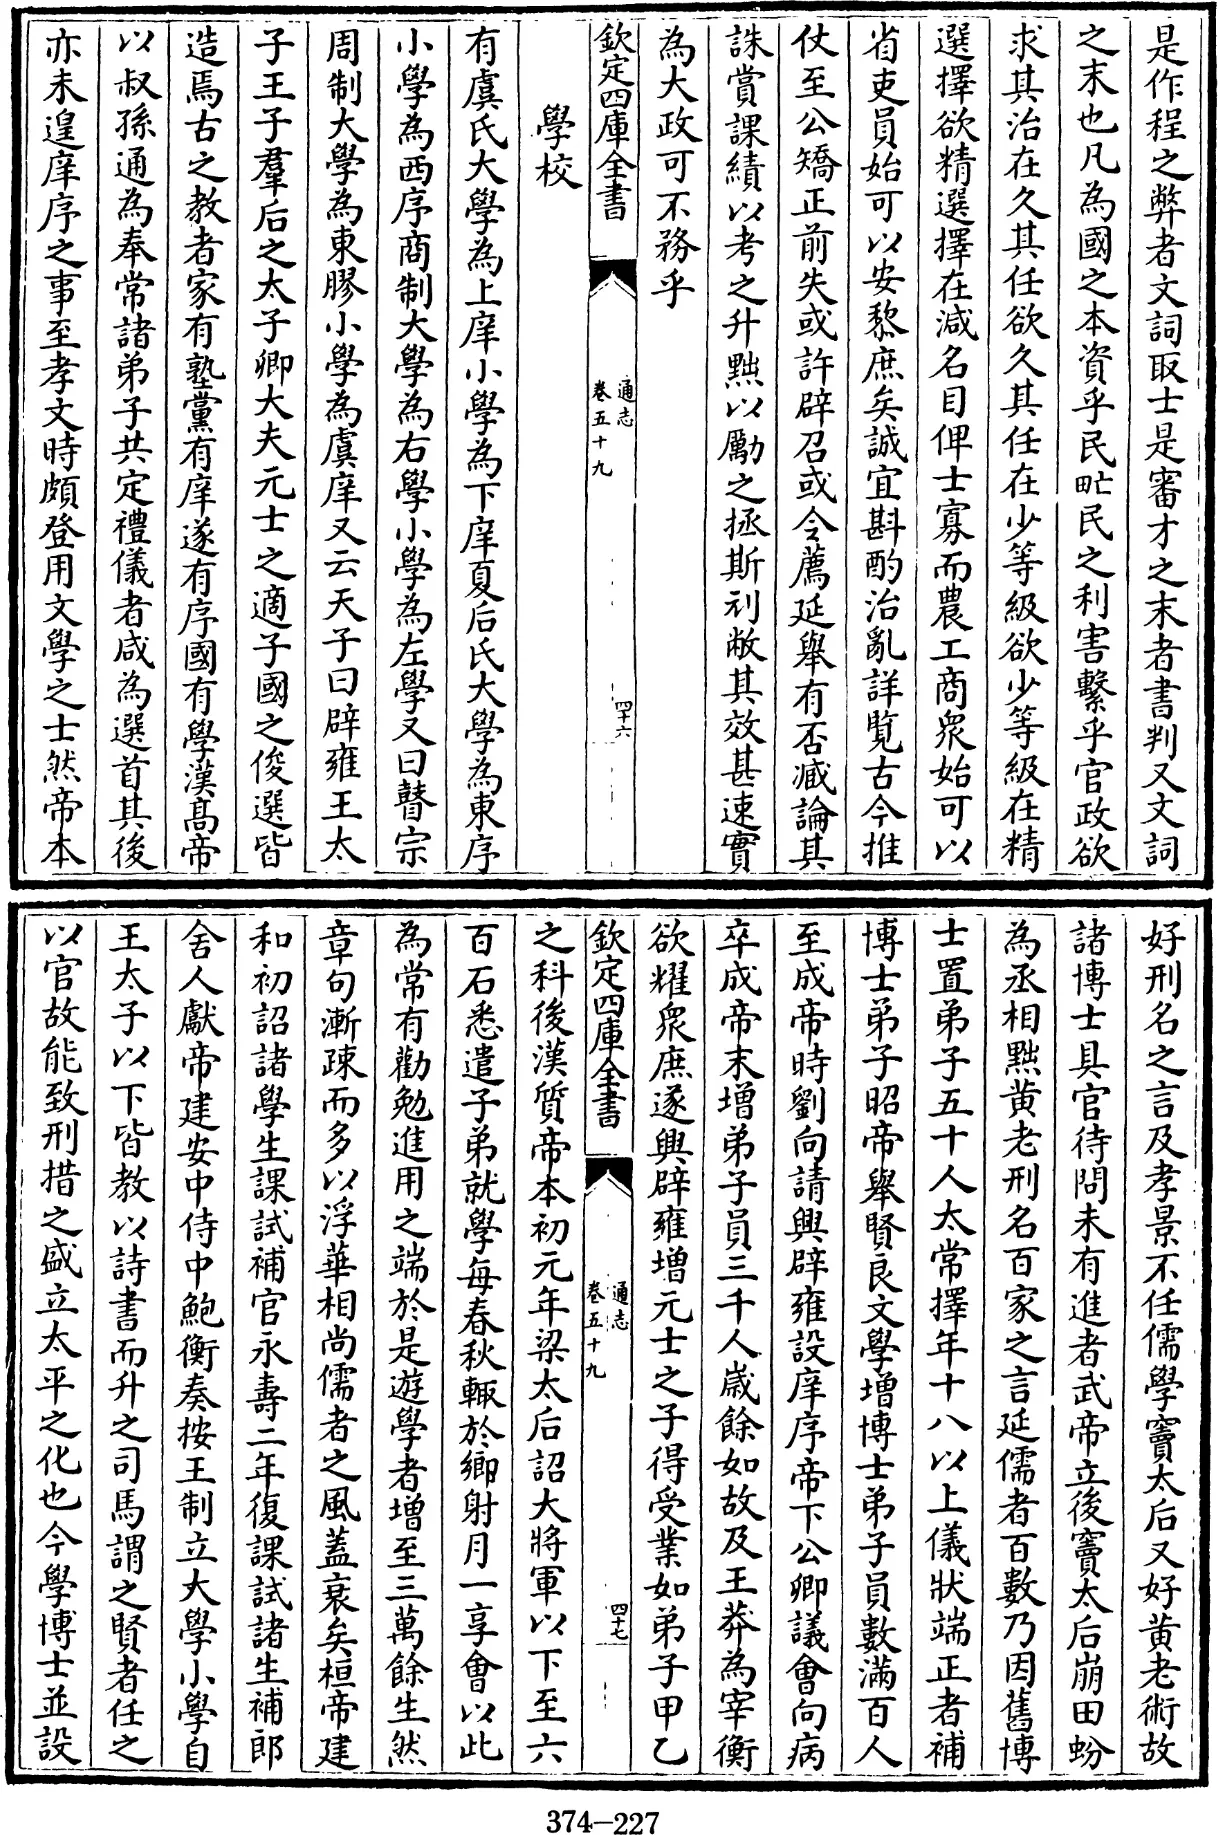 是作程之弊者文詞取士是審才之末者書判又文詞
之末也凡為國之本資乎民甿民之利害繫乎官政欲
求其治在久其任欲久其任在少等級欲少等級在精
選擇欲精選擇在減名目俾士寡而農工商衆始可以
省吏員始可以安黎庶矣誠宜斟酌治亂詳覧古今推
仗至公矯正前失或許辟召或令薦延舉有否臧論其
誅賞課績以考之升黜以勵之拯斯刓敝其效甚速實
為大政可不務乎
欽定四庫全書
通志
卷五十九
四十六
學校
有虞氏大學為上庠小學為下庠夏后氏大學為東序
小學為西序商制大學為右學小學為左學又曰瞽宗
周制大學為東膠小學為虞庠又云天子曰辟雍王太
子王子羣后之太子卿大夫元士之適子國之俊選皆
造焉古之教者家有塾黨有庠遂有序國有學漢髙帝
以叔孫通為奉常諸弟子共定禮儀者咸為選首其後
亦未遑庠序之事至孝文時頗登用文學之士然帝本
好刑名之言及孝景不任儒學竇太后又好黄老術故
諸博士具官待問未有進者武帝立後竇太后崩田蚡
為丞相黜黄老刑名百家之言延儒者百數乃因舊博
士置弟子五十人太常擇年十八以上儀狀端正者補
博士弟子昭帝舉賢良文學增博士弟子員數滿百人
至成帝時劉向請興辟雍設庠序帝下公卿議會向病
卒成帝末增弟子員三千人嵗餘如故及王莽為宰衡
欲耀衆庶遂興辟雍增元士之子得受業如弟子甲乙
欽定四庫全書
通志
卷五十九
四十七
之科後漢質帝本初元年梁太后詔大將軍以下至六
百石悉遣子弟就學每春秋輙於鄉射月一享會以此
為常有勸勉進用之端於是遊學者增至三萬餘生然
章句漸疎而多以浮華相尚儒者之風蓋衰矣桓帝建
和初詔諸學生課試補官永壽二年復課試諸生補郎
舍人獻帝建安中侍中鮑衡奏按王制立大學小學自
王太子以下皆教以詩書而升之司馬謂之賢者任之
以官故能致刑措之盛立太平之化也今學博士並設
374-227